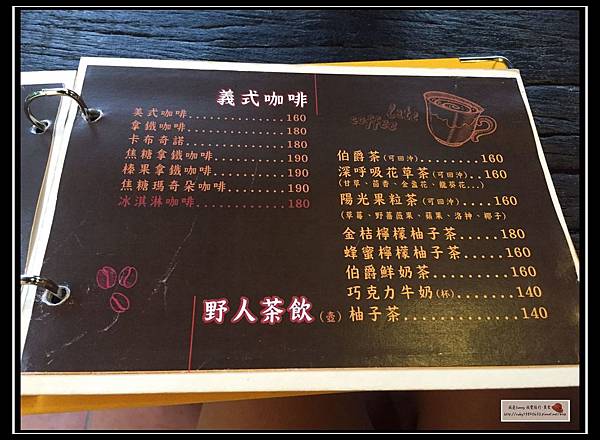 義式咖啡
美式咖啡..................160
拿鐵咖啡..................180
卡布奇諾..................180
焦糖拿鐵咖啡............190
榛果拿鐵咖啡............190
焦糖瑪奇朵咖啡.........190
冰淇淋咖啡...............180
late
coffee
伯爵茶(可回沖).........160
深呼吸花草茶(可回沖)..160
(甘草、茴香、金盞花、龍葵花...)
陽光果粒茶(可回沖)....160
(草莓、野薔薇果、蘋果、洛神、椰子)
金桔檸檬柚子茶.....180
蜂蜜檸檬柚子茶.....160
伯爵鮮奶茶..........160
巧克力牛奶(杯).......140
野人茶飲(壺)
柚子茶...............140